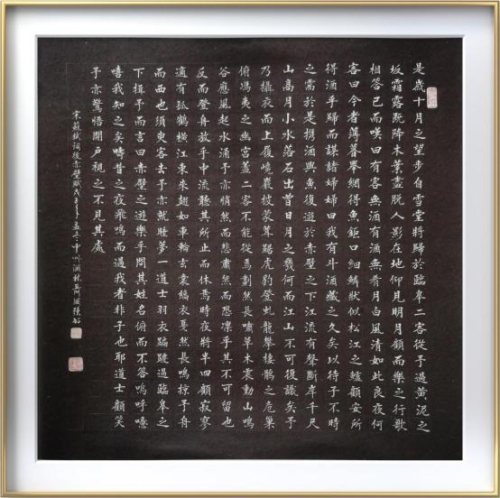 是歲十月之望步自雪堂將歸於臨皋二客從予過黃泥之
坂霜露既降木葉盡脫人影在地仰見明月顧而樂之行歌
相答已而嘆曰有客無酒有酒無肴月白風清如此良夜何
客曰今者薄暮舉網得魚鉅口細鱗狀似松江之鱸顧安所
得酒乎歸而謀諸婦婦曰我有斗酒藏之久矣以待子不時
之需於是攜酒與魚復遊於赤壁之下江流有聲斷岸千尺
山高月小水落石出曾日月之幾何而江山不可復識矣予
乃攝衣而上履巉巖披蒙茸踞虎豹登虬龍攀棲鶻之危巢
俯馮夷之幽宮蓋二客不能從焉劃然長嘯草木震動山鳴
谷應風起水涌予亦悄然而悲肅然而恐凜乎其不可留也
反而登舟放乎中流聽其所止而休焉時夜將半四顧寂寥
適有孤鶴橫江東來翅如車輪玄裳縞衣戛然長鳴掠予舟
而西也須臾客去予亦就睡夢一道士羽衣蹁躚過臨皋之
下揖予而言曰赤壁之遊樂乎問其姓名俯而不答嗚呼噫
嘻我知之矣疇昔之夜飛鳴而過我者非子也耶道士顧笑
予亦驚悟開戶視之不見其處
宋蘇軾詞後赤壁賦